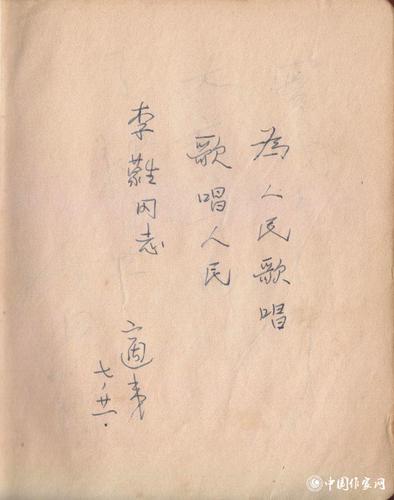 為人民歌唱
歌唱人民
李蕤同志
適夷
七、廿一.
中国作家网